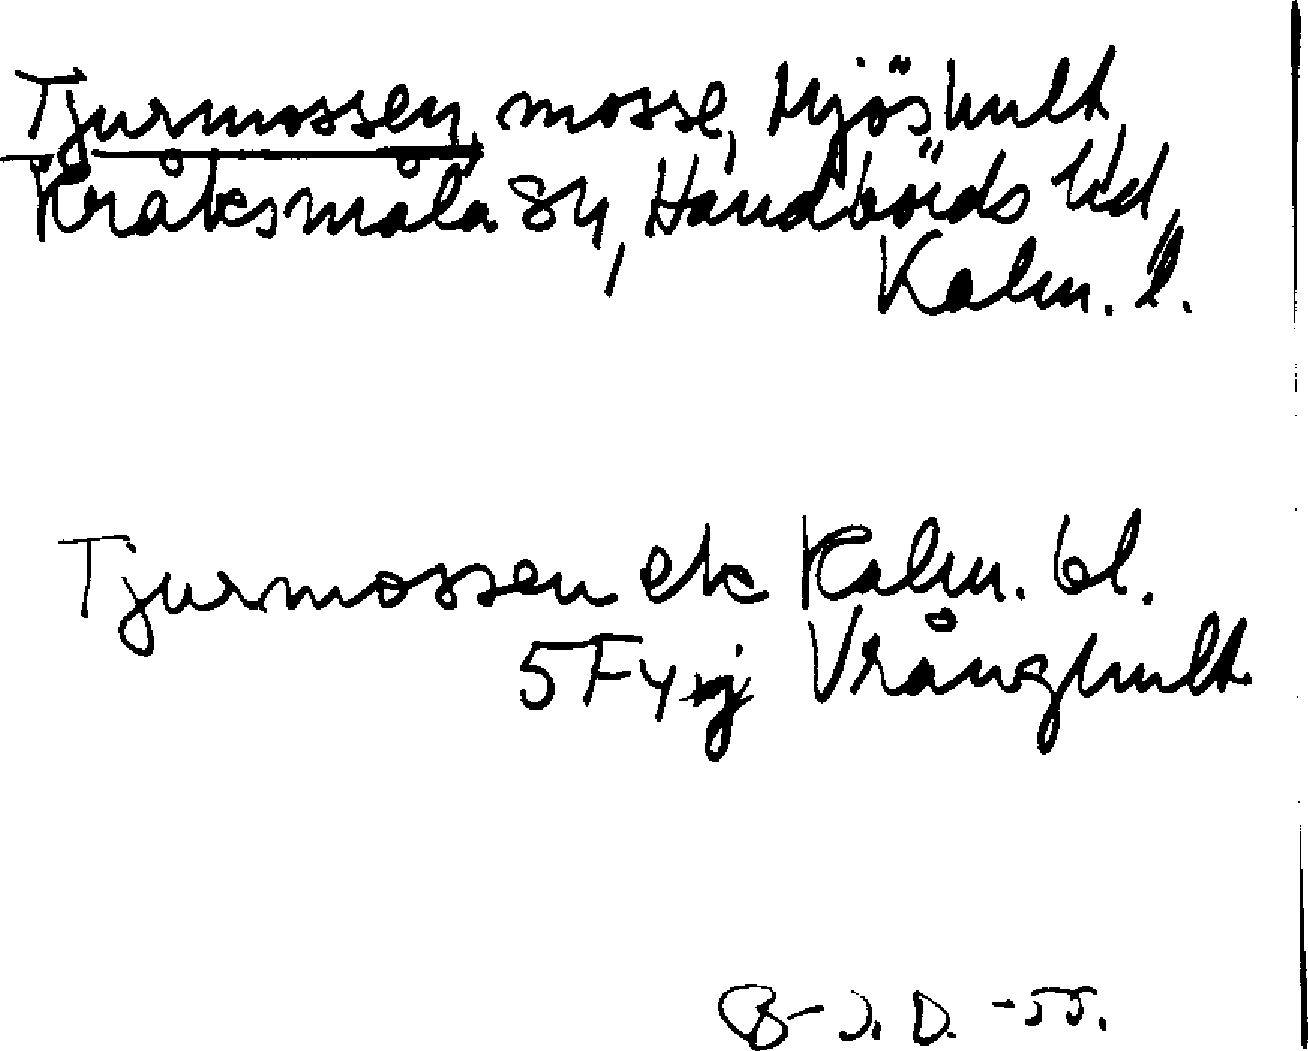 Tjurmossen, mosse, Mjöshult,
Kråksmåla sn, Handbörds hd,
Kalm. l.
Tjurmossen ek Kalm. bl.
5F Vrånghult
B-J. D. -55.